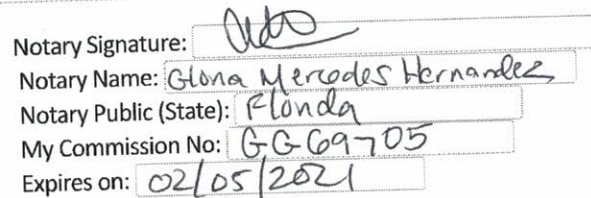 Notary Signature:
Notary Name: Gloria Mercedes Hernandez
Notary Public (State): Florida
My Commission No: GG69705
Expires on: 02/05/2021